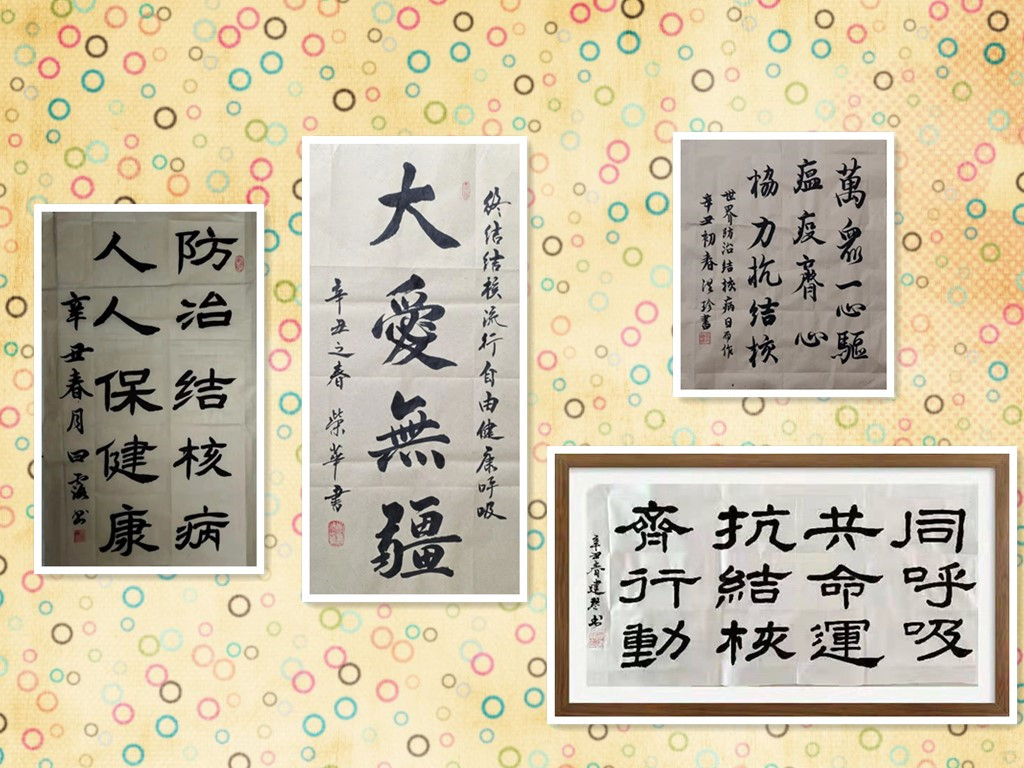 防治结核病
人人保健康
辛丑春月田霞书
终结结核流行自由健康呼吸
大愛無疆
辛丑之春 榮華書
萬眾一心驅
瘟疫齊心
協力抗结核
世界防治结核病日而作
辛丑初春洪珍書
同呼吸
共命運
抗結核
齊行動
辛丑春建琴书